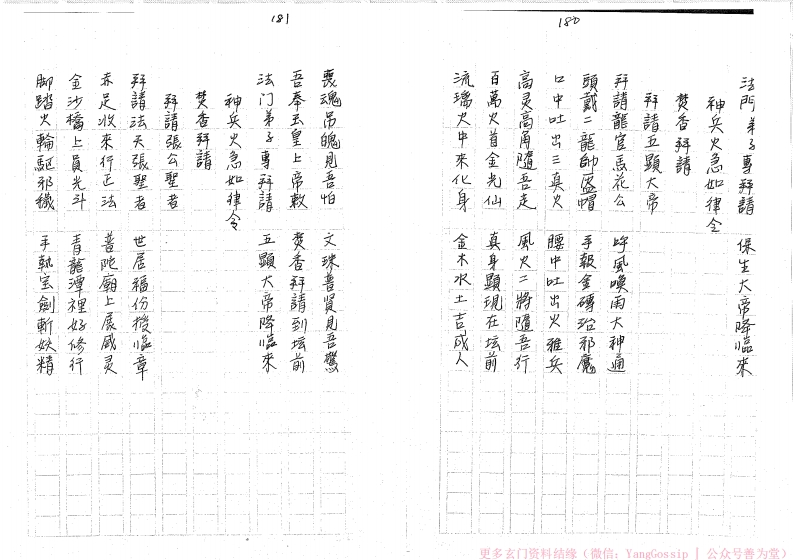 180
法門弟子專拜請 保生大帝降臨來
神兵火急如律令
焚香拜請
拜請五顯大帝
拜請龍官馬花公 呼風喚雨大神通
頭戴二龍帥盔帽 手執金磚治邪魔
口中吐出三真火 腰中吐出火雅兵
高灵高角隨吾走 風火二將隨吾行
百萬火首金光仙 真身顯現在坛前
流璃火中來化身 金木水土吉成人
181
喪魂吊魄見吾怕 文珠普賢見吾驚
吾奉玉皇上帝敕 焚香拜請到坛前
法门弟子專拜請 五顯大帝降臨來
神兵火急如律令
焚香拜請
拜請張公聖者
拜請法天張聖者 世居福份授臨章
赤足收來行正法 普陀廟上展威灵
金沙橋上員光斗 青龍潭裡好修行
脚踏火輪駈邪穢 手執宝劍斬妖精
更多玄门资料结缘（微信：YangGossip | 公众号善为堂）